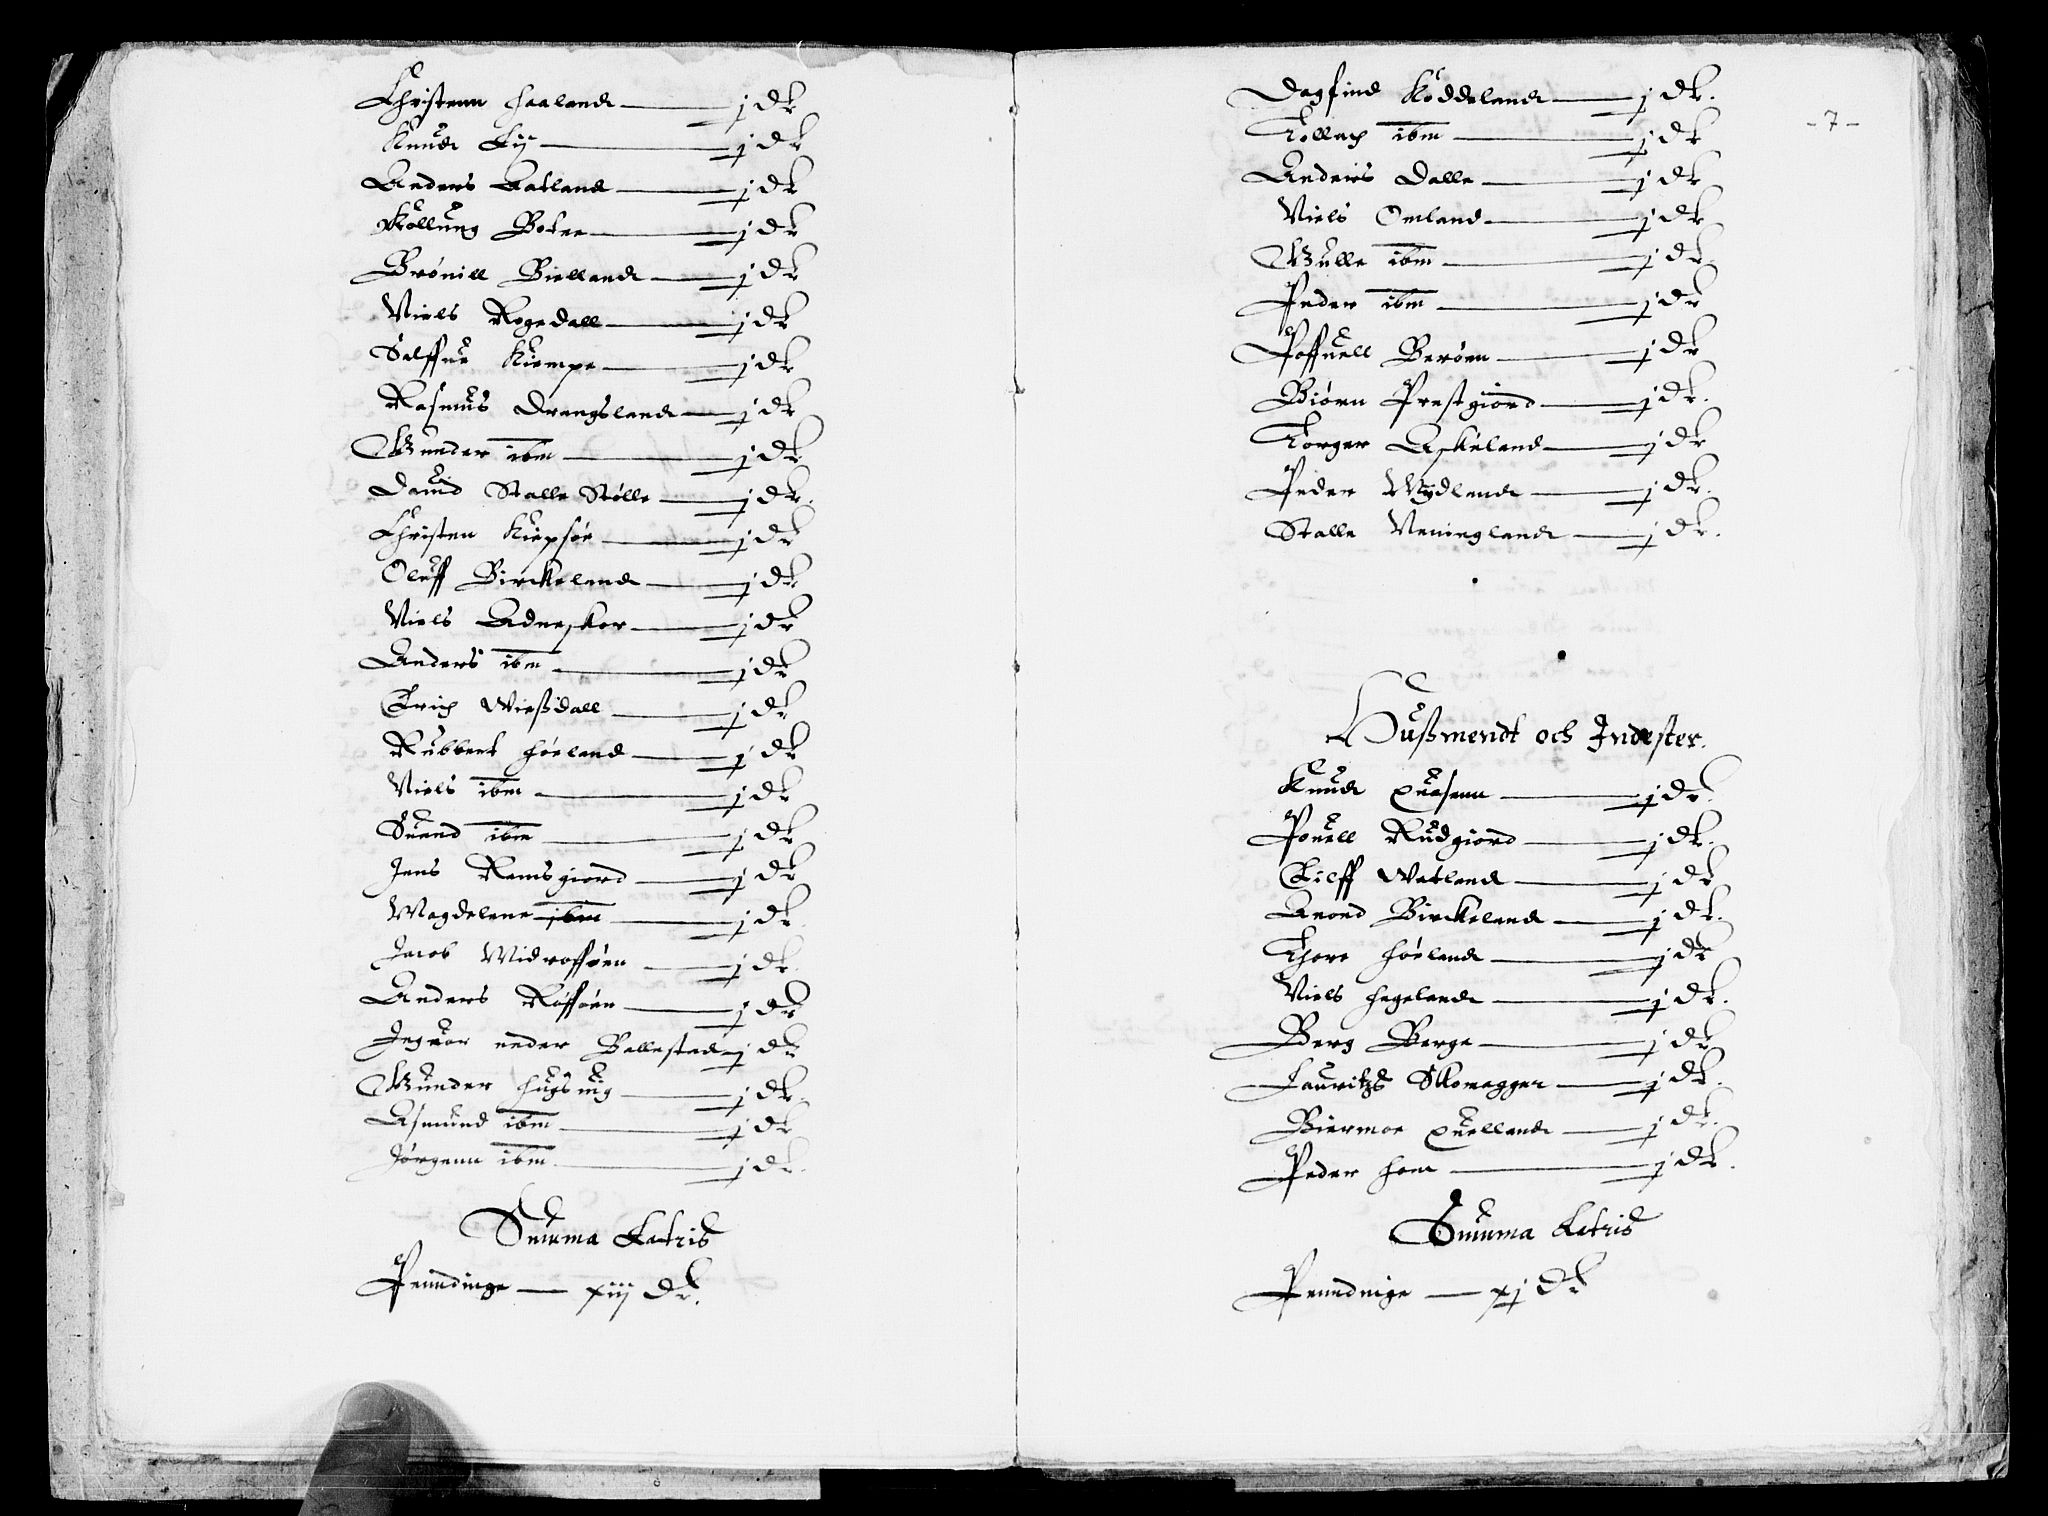 Christenn Haaland j dr
Knud Lij j dr
Anders Aatland j dr
Kollung Botne j dr
Brønill Bielland j dr
Niels Rogedall j dr
Salffue Kiempe j dr
Rasmus Drangsland j dr
Gunder ibm j dr
Dauid Stalle Stølle j dr.
Christen Kiepsøe j dr
Oluff Birckeland j dr
Niels Adneskor j dr
Anders ibm j dr
Erich Wirßdall j dr
Rubbert Høeland j dr
Niels ibm j dr
Suend ibm j dr
Jens Ramsgiord j dr
Magdelene ibm j dr.
Jacob Midrofføen j dr.
Anders Røfføen j dr
Inguor neder Ballestad j dr
Gunder Hugsuig j dr.
Asmund ibm j dr
Jørgenn ibm j dr.
Summa Latris
Penndinge xiij dr.
-7-
Dagfind Koddeland j dr.
Tollach ibm j dr
Anders Dalle j dr
Niels Omland j dr
Gulle ibm j dr.
Peder ibm j dr
Poffuell Berøen j dr
Biørn Prestgiord j dr.
Torger Askeland j dr
Peder Mydland j dr.
Stalle Neningland j dr.
Hußmendt och Indester.
Knud Quesenn j dr.
Pouell Rudgiord j dr.
Eilff Watland j dr
Anond Birckeland j dr.
Thore Høeland j dr
Niels Hegeland j dr.
Berg Berge j dr
Lauritzs Skomagger j dr.
Biermoe Quelland j dr.
Peder Hom j dr.
Summa Latris
Penndinge xj dr